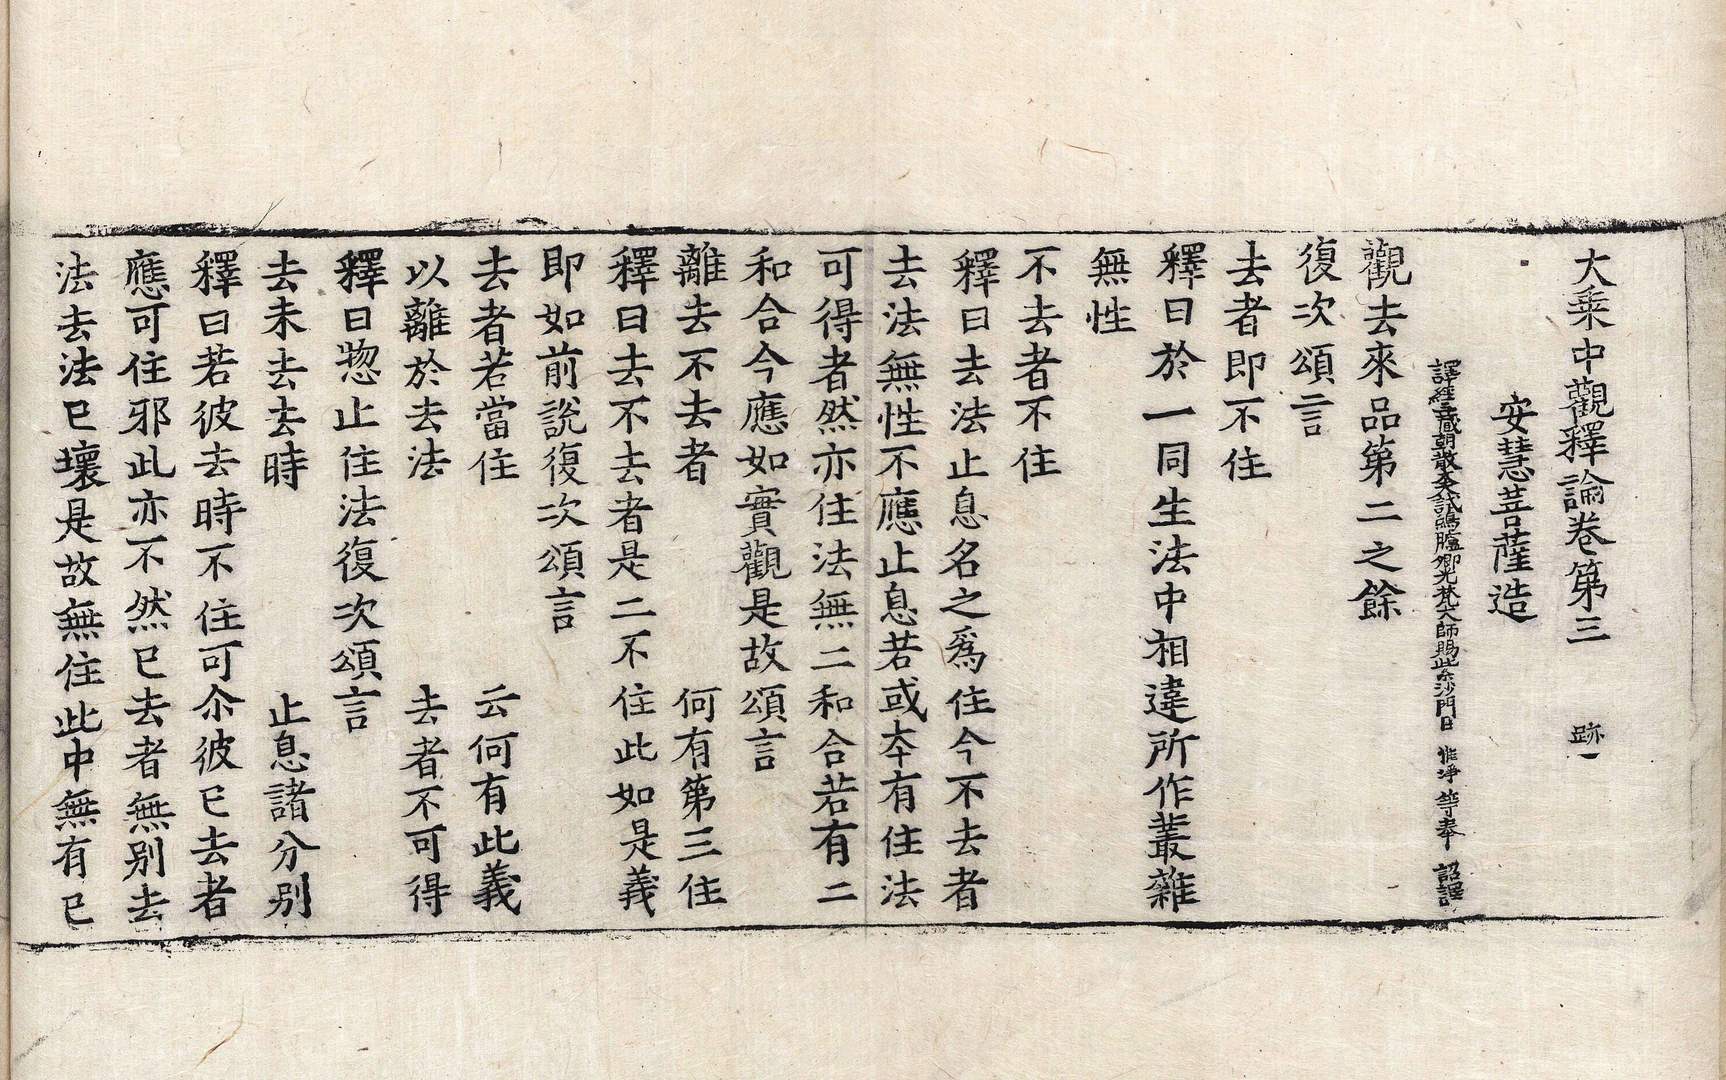 大乗中觀釋論卷第三 跡一
安慧菩薩造
譯經三藏朝散大夫試鴻臚卿光梵大師賜紫沙門臣惟淨等奉 詔譯
觀去來品第二之餘
復次頌言
去者即不住
釋曰於一同生法中相違所作叢雜
無性
不去者不住
釋曰去法止息名之爲住今不去者
去法無性不應止息若或夲有住法
可得者然亦住法無二和合若有二
和合今應如實觀是故頌言
離去不去者 何有第三住
釋曰去不去者是二不住此如是義
即如前說復次頌言
去者若當住 云何有此義
以離於去法 去者不可得
釋曰惣止住法復次頌言
去未去去時 止息諸分别
釋曰若彼去時不住可尒彼已去者
應可住邪此亦不然已去者無别去
法去法已壞是故無住此中無有已